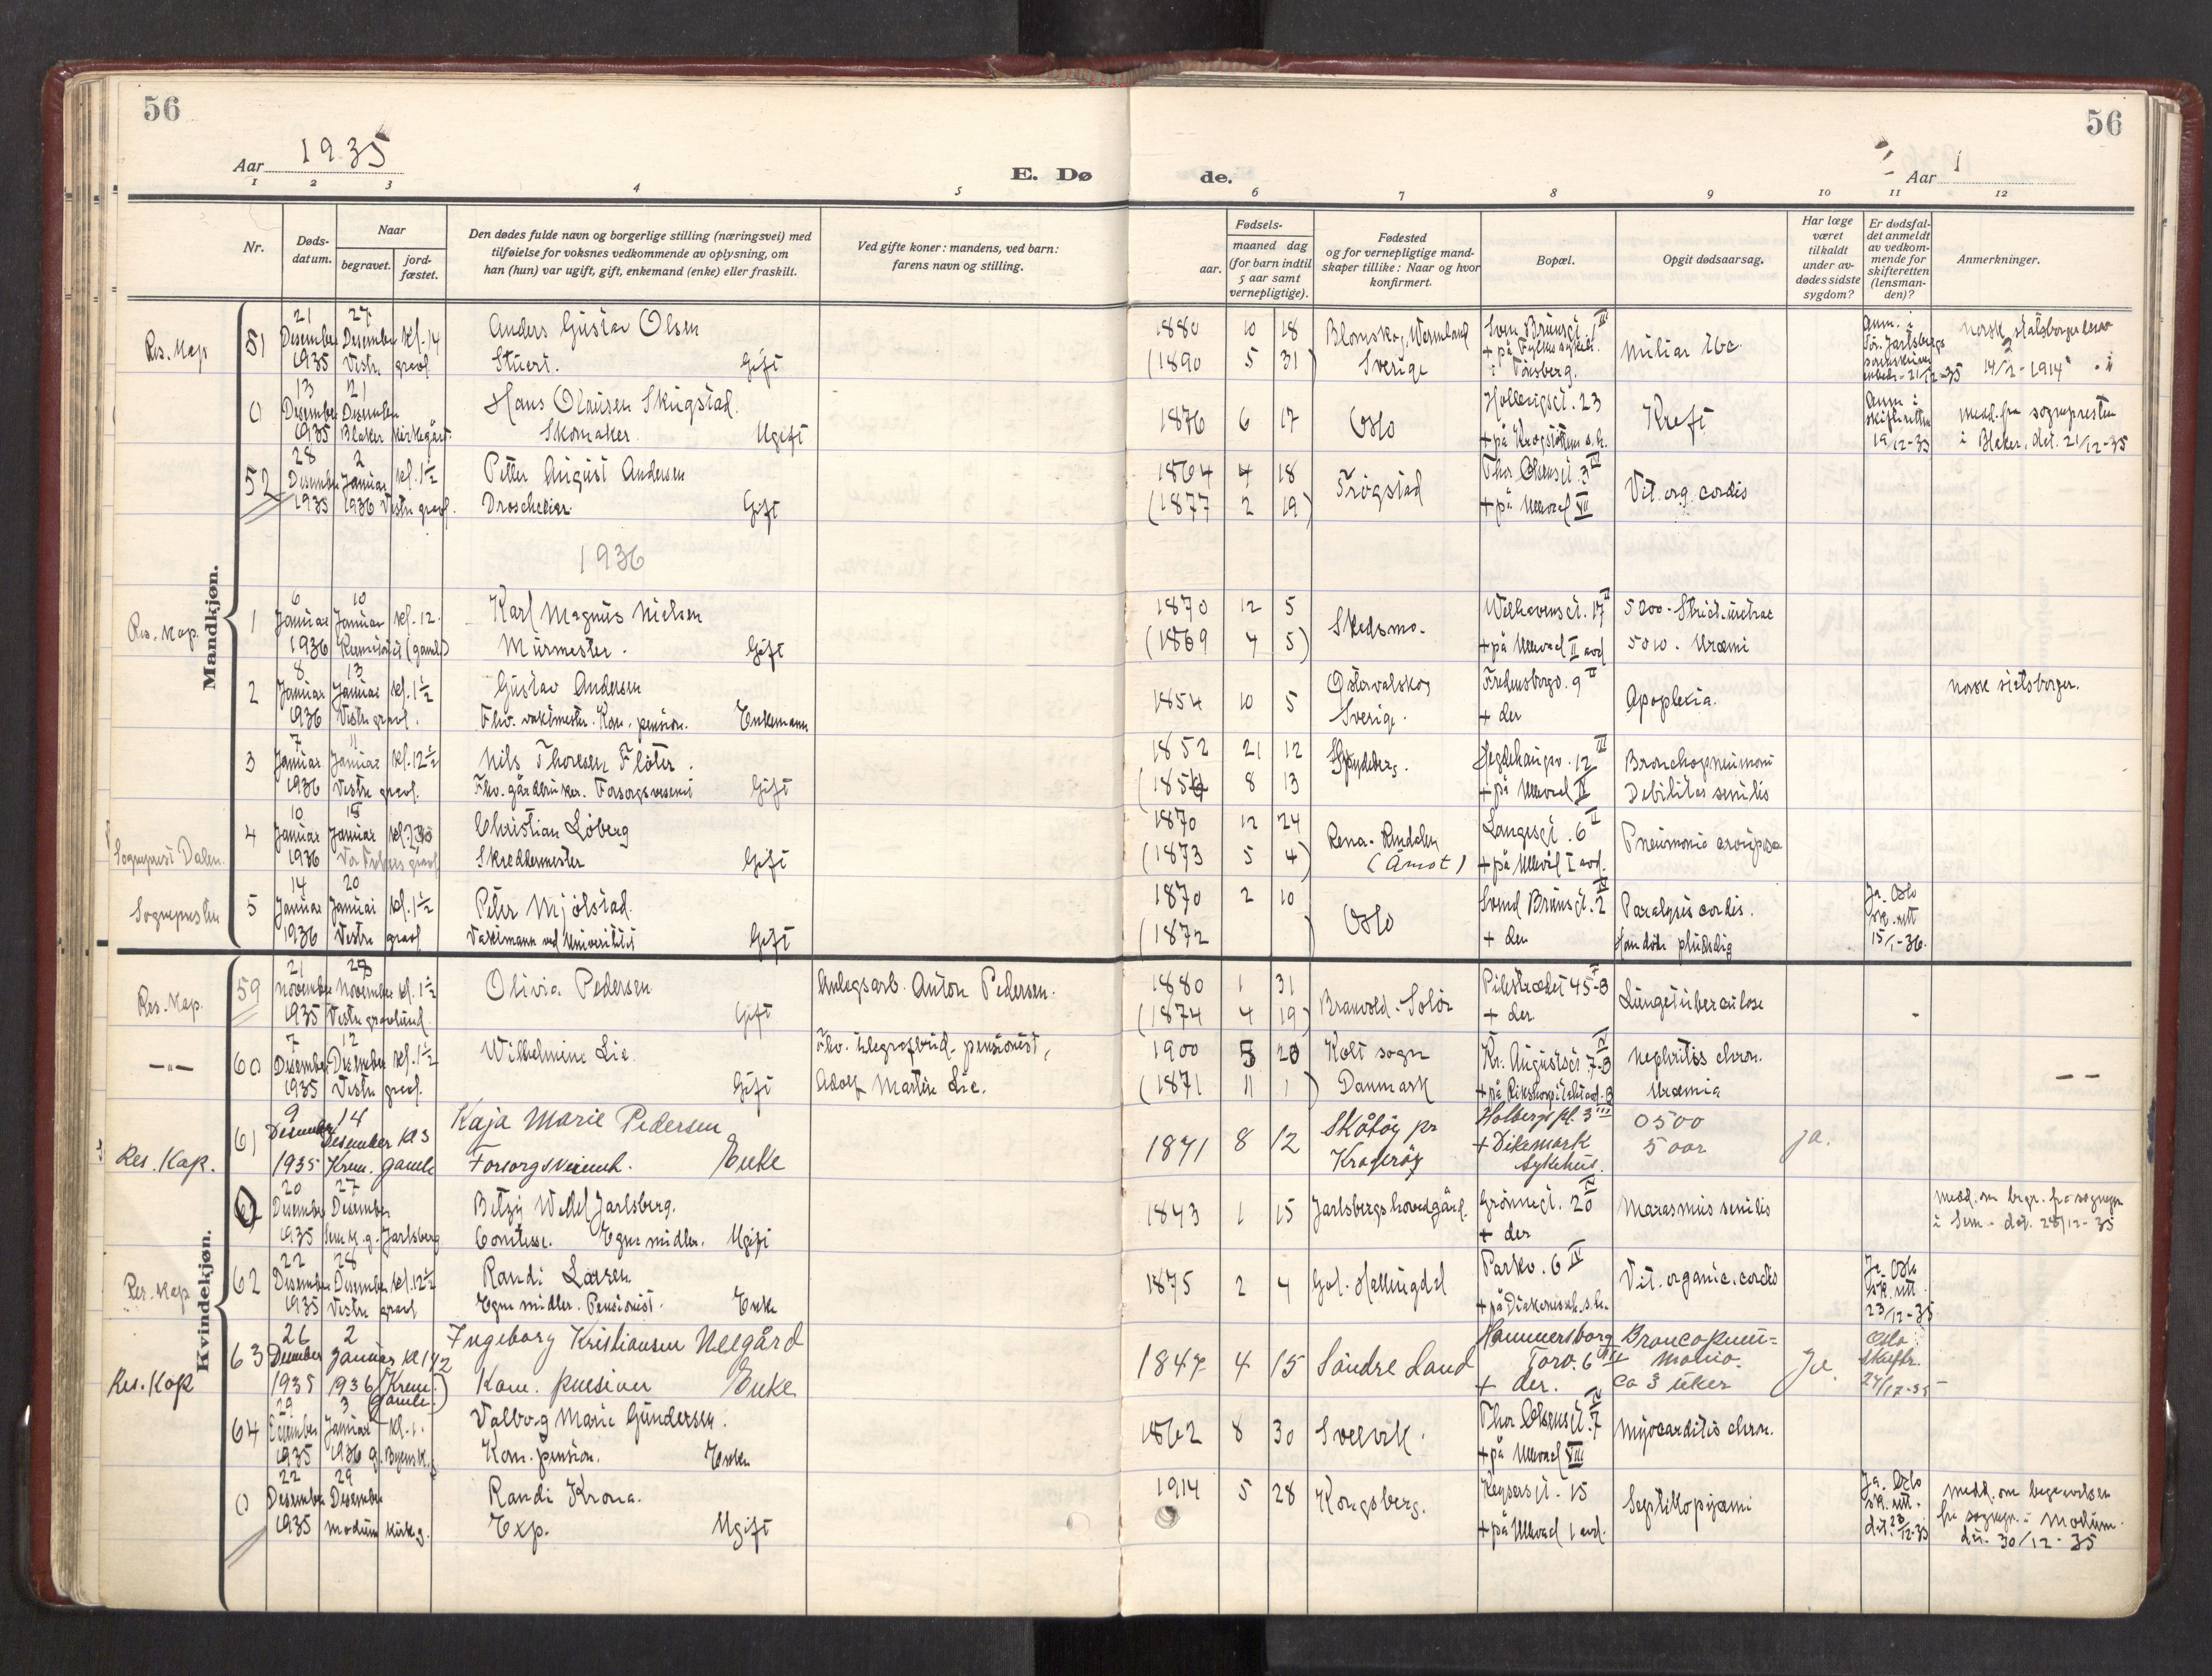 56
56
Aar 1935
E. Dø
de.
Aar
1 2 3 4 5 6 7 8 9 10 11 12
Nr.
Døds-
datum.
Naar
begravet.
jord-
fæstet.
Den dødes fulde navn og borgerlige stilling (næringsvei) med
tilføielse for voksnes vedkommende av oplysning, om
han (hun) var ugift, gift, enkemand (enke) eller fraskilt.
Ved gifte koner: mandens, ved barn:
farens navn og stilling.
Fødsels-
aar.
maaned dag
(for barn indtil
5 aar samt
vernepligtige).
Fødested
og for vernepligtige mand-
skaper tillike: Naar og hvor
konfirmert.
Bopæl.
Opgit dødsaarsag.
Har læge
været
tilkaldt
under av-
dødes sidste
sygdom?
Er dødsfal-
det anmeldt
av vedkom-
mende for
skifteretten
(lensman-
den)?
Anmerkninger.
Mandkjøn.
Res. Kap 51 21 Desember 1935 27 Desember Vestre gravl kl. 14
Anders Gustav Olsen
Stuert. Gift
1880 10 18
(1890 5 31)
Blomskog, Wermland
Sverige
Sven Brunsgt. 1 III
+ på Fylkessykeh.
i Tønsberg.
miliar tbc.
Anm. i
Sør. Jarlsbergs
21/12-35
norsk statsborgerbrev
14/2-1914
0 13 Desember 1935 21 Desember Blaker kirkegård.
Hans Olausen Skugstad.
Skomaker. Ugift
1876 6 17
Oslo
23
+ på Krogstøtten s.h.
Kreft
Anm. i
skifteretten
19/12-35
medd. fra sognepresten
i Blaker, dat. 21/12-35
52 28 Desember 1935 2 Januar 1936 Vestre gravl. kl. 1½
Petter August Andersen
Droscheeier. Gift
1864 4 18
(1877 2 19)
Trøgstad
Thor Olsensgt. 3 IV
+ på Ullevaal VII
Vit. org. cordis
1936
Res. Kap. 1 6 Januar 1936 10 Januar (gamle) kl. 12.
Karl Magnus Nielsen
Murmester. Gift
1870 12 5
(1869 4 5)
Skedsmo.
Welhavensgt. 17 II
+ på Ullevaal II avd
5200. Strict. uretrae
5010. Uræmi
2 8 Januar 1936 13 Januar Vestre gravl. kl. 1½
Gustav Andersen
Fhv. vaktmester. Kom. pension. Enkemann
1854 10 5
Østervalskog
Sverige.
Fredensborgv. 9 II
+ der
Apoplexia.
norsk statsborger.
3 7 Januar 1936 11 Januar Vestre gravl. kl. 12½
Nils Thoresen Fløter.
Fhv. gårdbruker. Forsorgsvesenet Gift
1852 21 12
(1854 8 13)
Spydeberg.
Hegdehaugsv. 12 III
+ på Ullevaal IV
Bronchopneumoni
Debilitas senilis
Sogneprest Dalen. 4 10 Januar 1936 15 Januar Vor Frelsers gravl kl.
Christian Løberg
Skreddermester Gift
1870 12 24
(1873 5 4)
Rena - Rendalen
(Åmot)
Langesgt. 6 II
+ på Ullevål I avd.
Pneumonia crouposa
Sognepresten 5 14 Januar 1936 20 Januar Vestre gravl kl. 1½
Peter Mjølstad.
Vaktmann ved Universitetet Gift
1870 2 10
(1872 )
Oslo
Svend Brunsgt. 2 IV
+ der
Paralysis cordis.
Han døde pludselig
Ja. Oslo
sk. rett
15/1-36.
Kvindekjøn.
Res. Kap. 59 21 November 1935 27 November Vestre gravlund kl. 1½
Olivia Pedersen Gift
Anlegsarb. Anton Pedersen.
1880 1 31
(1874 4 19)
Branvold - Solør
Pilestrædet 45-B
+ der
Lungetuberculose
—"— 60 7 Desember 1935 12 Desember Vestre gravl. kl. 1½
Wilhelmine Lie. Gift
Fhv. telegrafbud, pensionist,
Adolf Martin Lie.
1900 5 20
(1871 11 1)
Kolt sogn
Danmark
Kr. Augustsgt. 7-B IV
+ på Rikshospitalet avd. B
Nephritis chron.
Uræmia
— —
Res. Kap. 61 9 Desember 1935 14 Desember Krem. gamle kl 3
Kaja Marie Pedersen
Enke
1871 8 12
Skåtøy pr
Kragerøy
Holbergs pl. 3 III
+ Dikemark
Sykehus.
0500
5 aar
ja.
62 20 Desember 1935 27 Desember Sem k.g. Jarlsberg
Betzy Wedel Jarlsberg.
Comtesse. Egne midler. Ugift
1843 1 15
Jarlsbergs hovedgård.
Grønnegt. 20 IV
+ der
Marasmus senilis
medd. om begr. fra sognepr.
i Sem - dat. 28/12-35
Res. Kap 62 22 Desember 1935 28 Desember Vestre gravl kl. 12½
Randi Larsen
Egne midler. Pensionist. Enke
1875 2 4
Gol. Hallingdal
Parkv. 6 IV
+ på Diakonisseh. s.h.
Vit. organic. cordis
Ja. Oslo
sk. rett
23/12-35
Res. Kap 63 26 Desember 1935 2 Januar 1936 (Krem. gamle) kl 1 1/2
Ingeborg Kristiansen Neegård
Kom. pensioner Enke
1847 4 15
Søndre Land
Hammersborg
Torv. 6
+ der.
Broncopneu=
monia.
ca 3 uker
Ja.
Oslo
Skifter.
27/12-35
64 29 Desember 1935 3 Januar 1936 kl. 1.
Valborg Marie Gundersen.
Kom. pension. Enke
1862 8 30
Svelvik.
Thor Olsensgt. 7 IV
+ på Ullevaal VIII
Myocarditis chron.
0 22 Desember 1935 29 Desember Modum kirkeg.
Randi Krona.
Exp. Ugift
1914 5 28
Kongsberg.
Keysersgt. 15
+ på Ullevaal 1 avd.
Septikopyæmi
Ja. Oslo
sk. rett.
dat. 23/12-35
medd. om begravelsen
fra sognepr. i Modum.
dat. 30/12-35